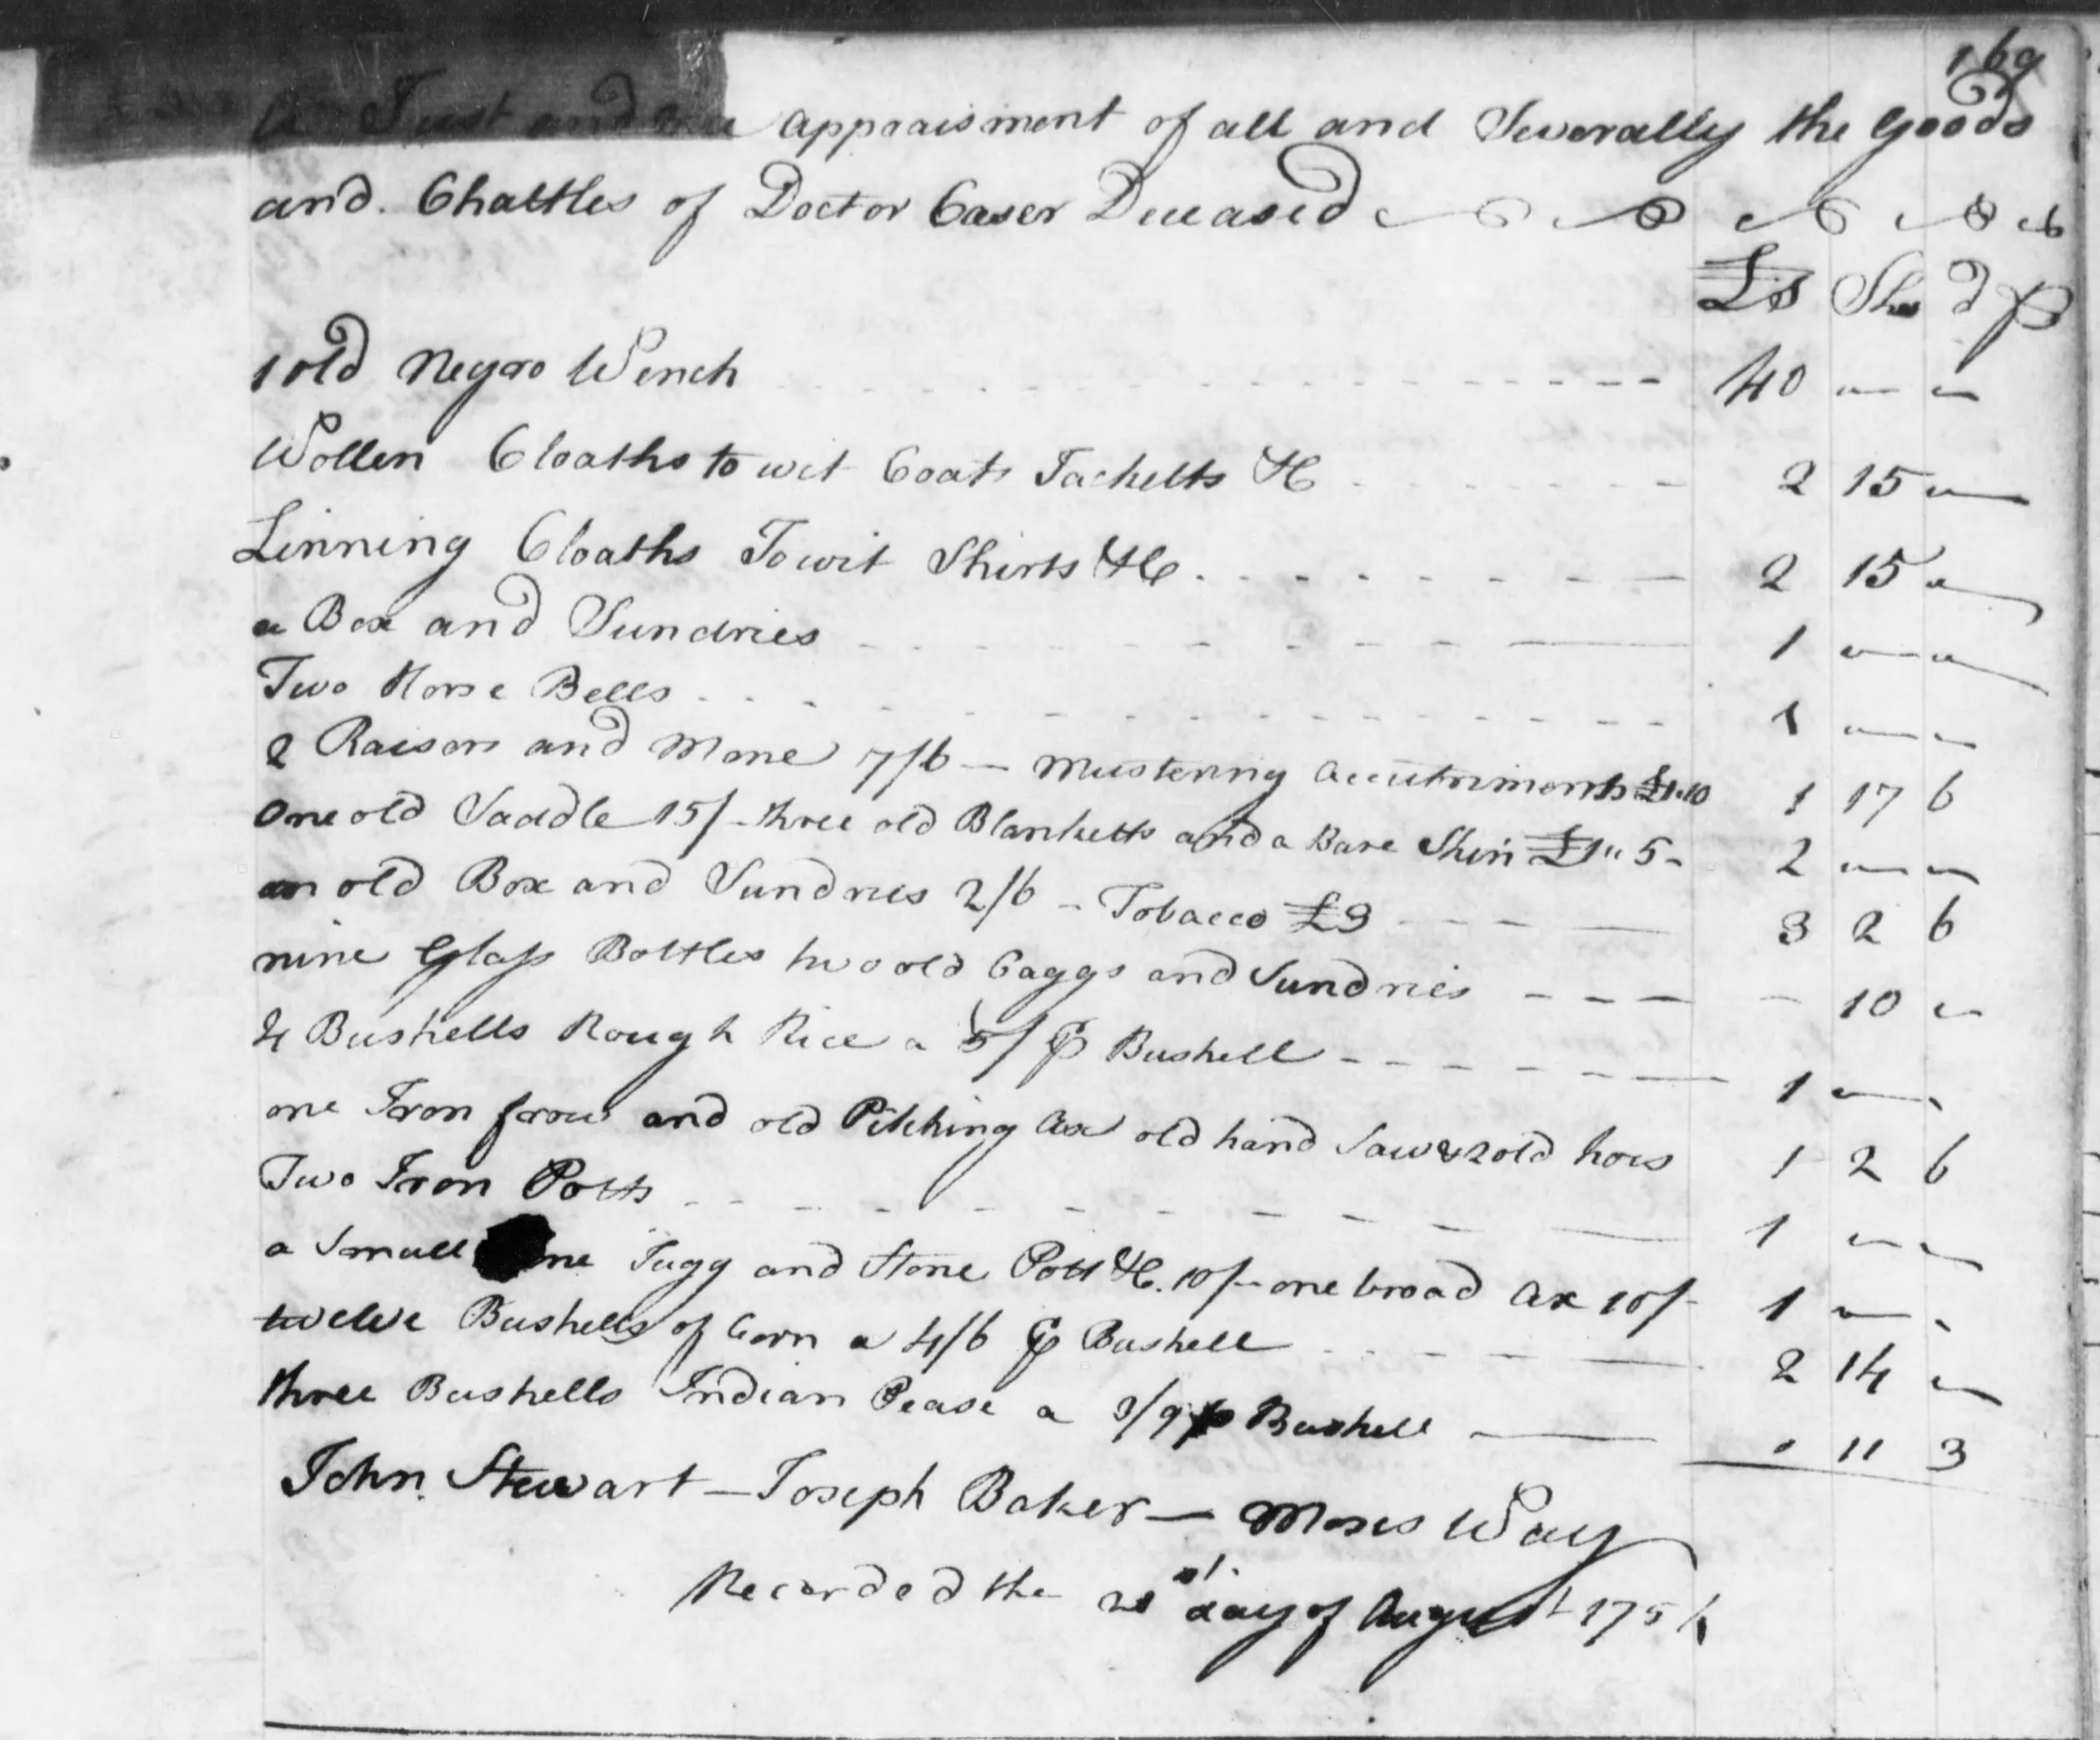 169
A Just and true appraisment of all and Severally the Goods
and Chattles of Doctor Caser Deceased
£s Shs d p
1 old Negro Wench - - - 40 - -
Wollen Cloaths to wit Coats Jacketts &C - - - 2 15 -
Linning Cloaths Towit Shirts &C. - - - 2 15 -
a Box and Sundries - - - 1 - -
Two Horse Bells - - - 1 - -
2 Raisors and Hone 7/6 - Mustering accutriments £1.10 1 17 6
One old Saddle 15/- three old Blanketts and a Bare Skin £1" 5- 2 - -
an old Box and Sundries 2/6 - Tobacco £3 - - - 3 2 6
nine Glass Bottles two old Caggs and Sundries - - - - 10 -
4 Bushells Rough Rice a 5/ ⅌ Bushell - - - 1 - -
one Iron frow and old Pitching ax old hand Saw & 2 old hoes 1 2 6
Two Iron Potts - - - 1 - -
a Small Jugg and Stone Pott &C. 10/- one broad ax 10/- 1 - -
twelve Bushells of Corn a 4/6 ⅌ Bushell - - - 2 14 -
three Bushells Indian Pease a 3/9 ⅌ Bushell - - - 11 3
John Stewart - Joseph Baker - Moses Way
Recorded the 21st. day of August 1754